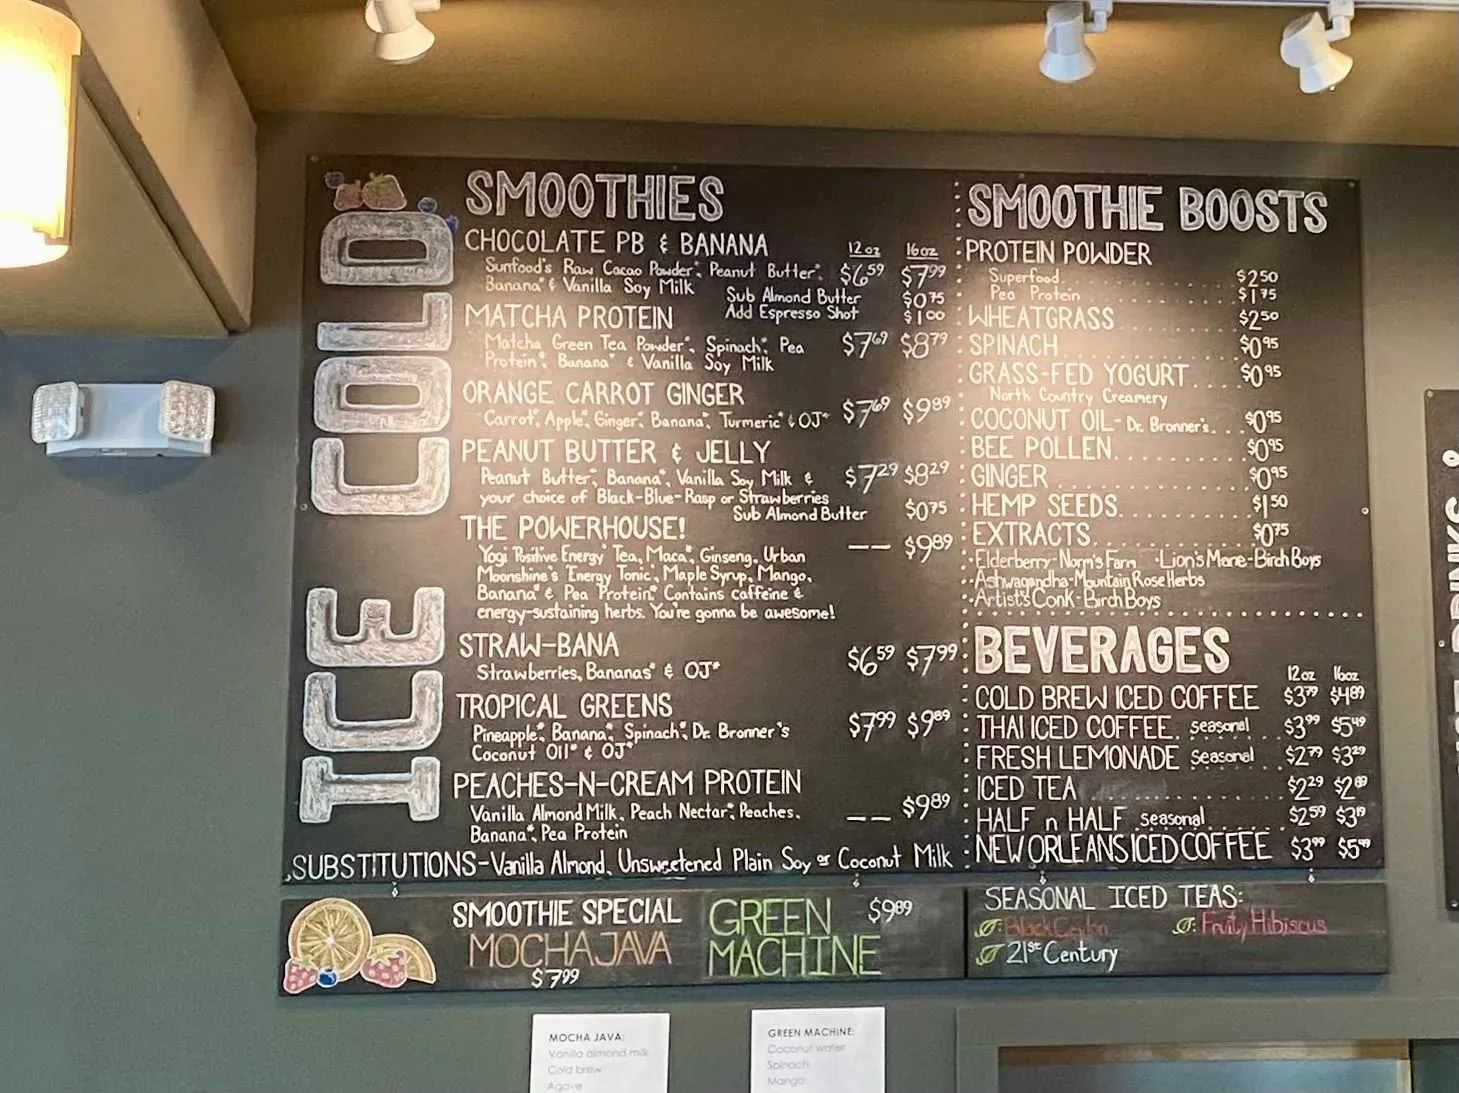 ICE COLD
SMOOTHIES
12 oz 16 oz
CHOCOLATE PB & BANANA
Sunfood's Raw Cacao Powder*, Peanut Butter*, $6.59 $7.99
Banana* & Vanilla Soy Milk
Sub Almond Butter $0.75
Add Espresso Shot $1.00
MATCHA PROTEIN
Matcha Green Tea Powder*, Spinach*, Pea $7.69 $8.79
Protein*, Banana* & Vanilla Soy Milk
ORANGE CARROT GINGER
Carrot*, Apple*, Ginger*, Banana*, Turmeric* & OJ* $7.69 $9.89
PEANUT BUTTER & JELLY
Peanut Butter*, Banana*, Vanilla Soy Milk & $7.29 $8.29
your choice of Black-Blue-Rasp or Strawberries
Sub Almond Butter $0.75
THE POWERHOUSE!
Yogi 'Positive Energy' Tea, Maca*, Ginseng, Urban –– $9.89
Moonshine's 'Energy Tonic', Maple Syrup, Mango,
Banana* & Pea Protein*. Contains caffeine &
energy-sustaining herbs. You're gonna be awesome!
STRAW-BANA
Strawberries, Bananas* & OJ* $6.59 $7.99
TROPICAL GREENS
Pineapple*, Banana*, Spinach*, Dr. Bronner's $7.99 $9.89
Coconut Oil* & OJ*
PEACHES-N-CREAM PROTEIN
Vanilla Almond Milk, Peach Nectar*, Peaches, –– $9.89
Banana*, Pea Protein
SUBSTITUTIONS-Vanilla Almond, Unsweetened Plain Soy or Coconut Milk
SMOOTHIE BOOSTS
PROTEIN POWDER
Superfood $2.50
Pea Protein $1.75
WHEATGRASS $2.50
SPINACH $0.95
GRASS-FED YOGURT $0.95
North Country Creamery
COCONUT OIL- Dr. Bronner's $0.95
BEE POLLEN $0.95
GINGER $0.95
HEMP SEEDS $1.50
EXTRACTS $0.75
·Elderberry-Norm's Farm ·Lion's Mane-Birch Boys
·Ashwagandha-Mountain Rose Herbs
·Artist's Conk-Birch Boys
BEVERAGES
12 oz 16oz
COLD BREW ICED COFFEE $3.79 $4.89
THAI ICED COFFEE seasonal $3.99 $5.49
FRESH LEMONADE seasonal $2.79 $3.29
ICED TEA $2.29 $2.89
HALF n HALF seasonal $2.59 $3.19
NEW ORLEANS ICED COFFEE $3.99 $5.49
SMOOTHIE SPECIAL
MOCHA JAVA
$7.99
GREEN $9.89
MACHINE
SEASONAL ICED TEAS:
Black Ceylon
Fruity Hibiscus
21st Century
MOCHA JAVA:
Vanilla almond milk
Cold brew
Agave
GREEN MACHINE:
Coconut water
Spinach
Mango